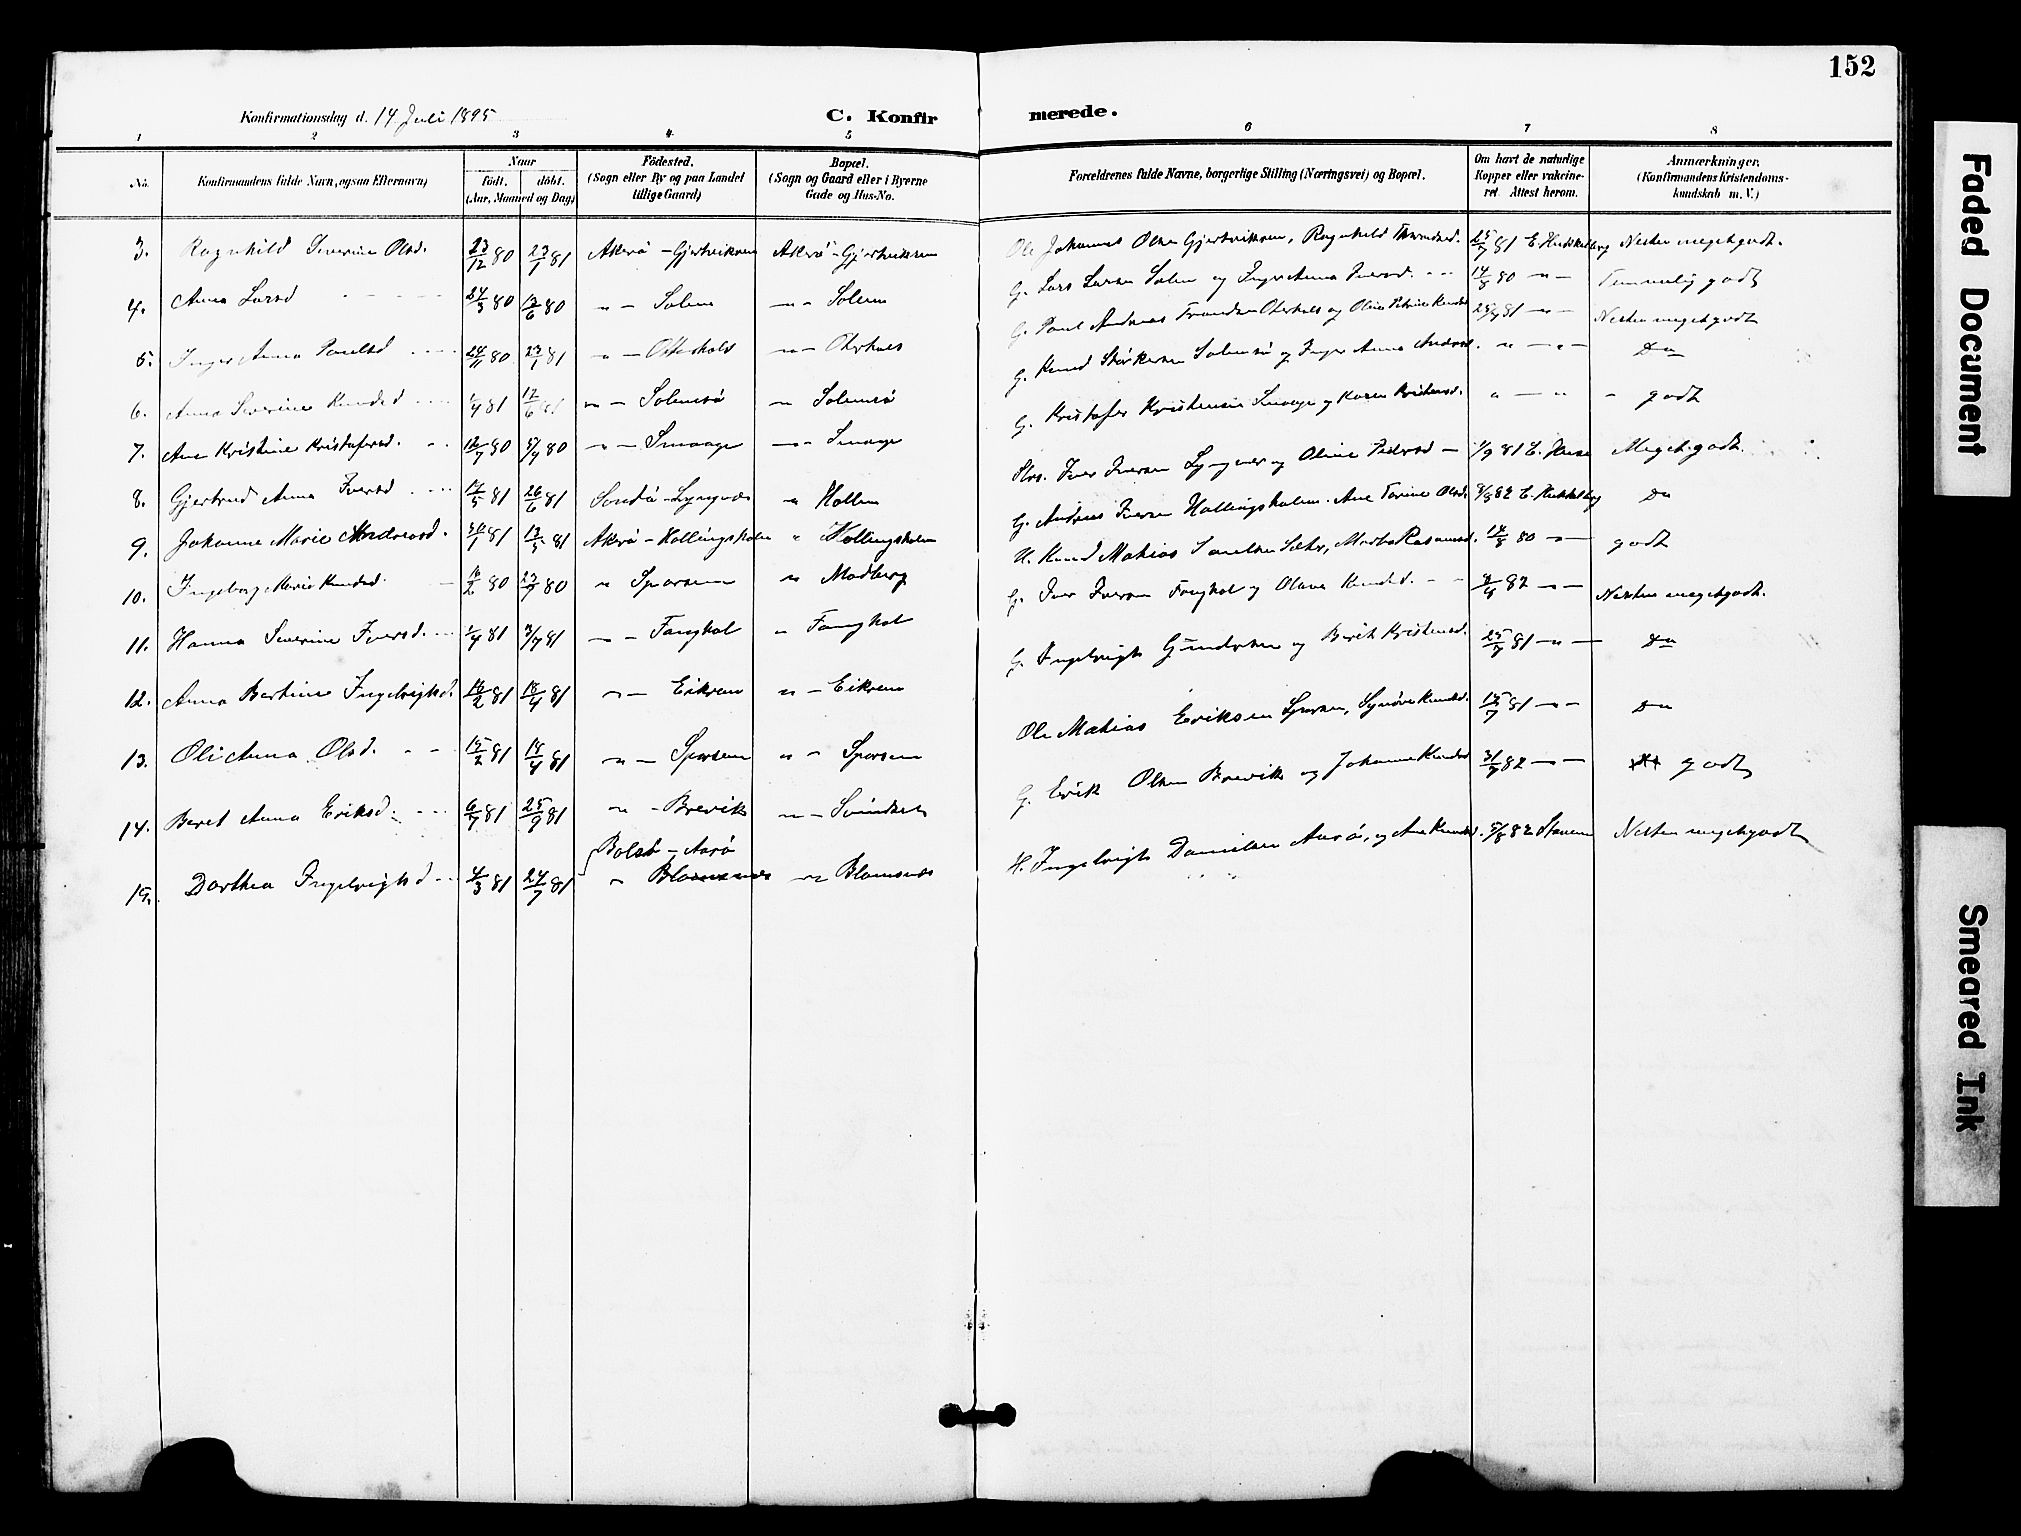 152
Konfirmationsdag d. 14 Juli 1895
C. Konfirmerede.
1 2 3 4 5 6 7 8
No.
Konfirmandens fulde Navn, ogsaa Efternavn)
Naar
födt. döbt.
(Aar, Maaned og Dag)
Födested.
(Sogn eller By og paa Landet
tillige Gaard)
Bopæl.
(Sogn og Gaard eller i Byerne
Gade og Hus-No.
Forældrenes fulde Navne, borgerlige Stilling (Næringsvei) og Bopæl.
Om havt de naturlige
Kopper eller vakcine-
ret. Attest herom.
Anmærkninger.
(Konfirmandens Kristendoms-
kundskab m. V.)
3. Ragnhild Severine Olsd. 23/12 80 23/1 81 Akerö - Gjertviksen Akerö - Gjertviksen Ole Johannes Olsen Gjertviksen, Ragnhild 25/7 81 Nesten megetgodt.
4. Anna Larsd 24/3 80 13/6 80 " - Solem " - Solem G. Lars Larsen Solem og Inger Anna Iversd. 14/8 80 " - Temmelig godt
5. Inger Anna Paulsd 24/11 80 23/1 81 " - Oterhals " - Oterhals G. Paul Andreas Oterhals og Oline Petrine Knudsd 25/7 81 " - Nesten megetgodt
6. Anna Severine Knudsd 1/4 81 12/6 81 " - Solemsö " Solemsö G. Knud Störkersen Solemsö og Inger Anna Andrsd. " - " - Do
7. Ane Kristine Kristofersd. 12/7 80 5/9 80 " - Smaage " - Smaage G. Kristofer Kristensen Smaage og Karen Kristensd. " - " - godt
8. Gjertrud Anna Iversd 17/5 81 26/6 81 Sandö - Lyngnes " Hollen Iver Iversen Lyngnes og Oline Pedersd - 1/9 81 Meget godt.
9. Johanne Marie Andreasd. 30/1 81 13/5 81 Akerö - Hollingsholm " Hollingsholm G. Andreas Iversen Hollingsholm. Ane Olsd. 9/8 82 Do
10. Ingeborg Marie Knudsd. 16/2 80 23/9 80 " Sporsem " Madberg Knud Mathias Sæter, Marta Rasmusd. 14/8 80 " - godt
11. Hanna Severine Iversd. 1/4 81 3/7 81 " - Tanghol " Tanghol G. Iver Iversen Tanghol og Olava Knudsd. 4/4 82 " - Nesten megetgodt.
12. Anna Bertine Ingebrigtsd. 16/2 81 18/4 81 " - Eikrem " - Eikrem G. Ingebrigt Gundersen og Berit Kristensd. 25/7 81 - " - Do
13. Oli Anna Olsd. 15/2 81 18/4 81 " - Sporsem " - Sporsem Ole Mathias Eriksen Sporsem, Synöve Knudsd. 15/7 81 - " - Do
14. Beret Anna Eriksd. 6/7 81 25/9 81 " - Brevik " - Svindset G. Erik Olsen Brevik og Johanne Knudsd 31/7 82 - " - godt
Bolsö - Aarö
15. Dorthea Ingebrigtsd 4/3 81 24/7 81 " Blomsnes " Blomsnes H. Ingebrigt Danielsen Aarö, og Ane Knudsd. 5/8 82 Nesten megetgodt
Faded Document
Smeared Ink